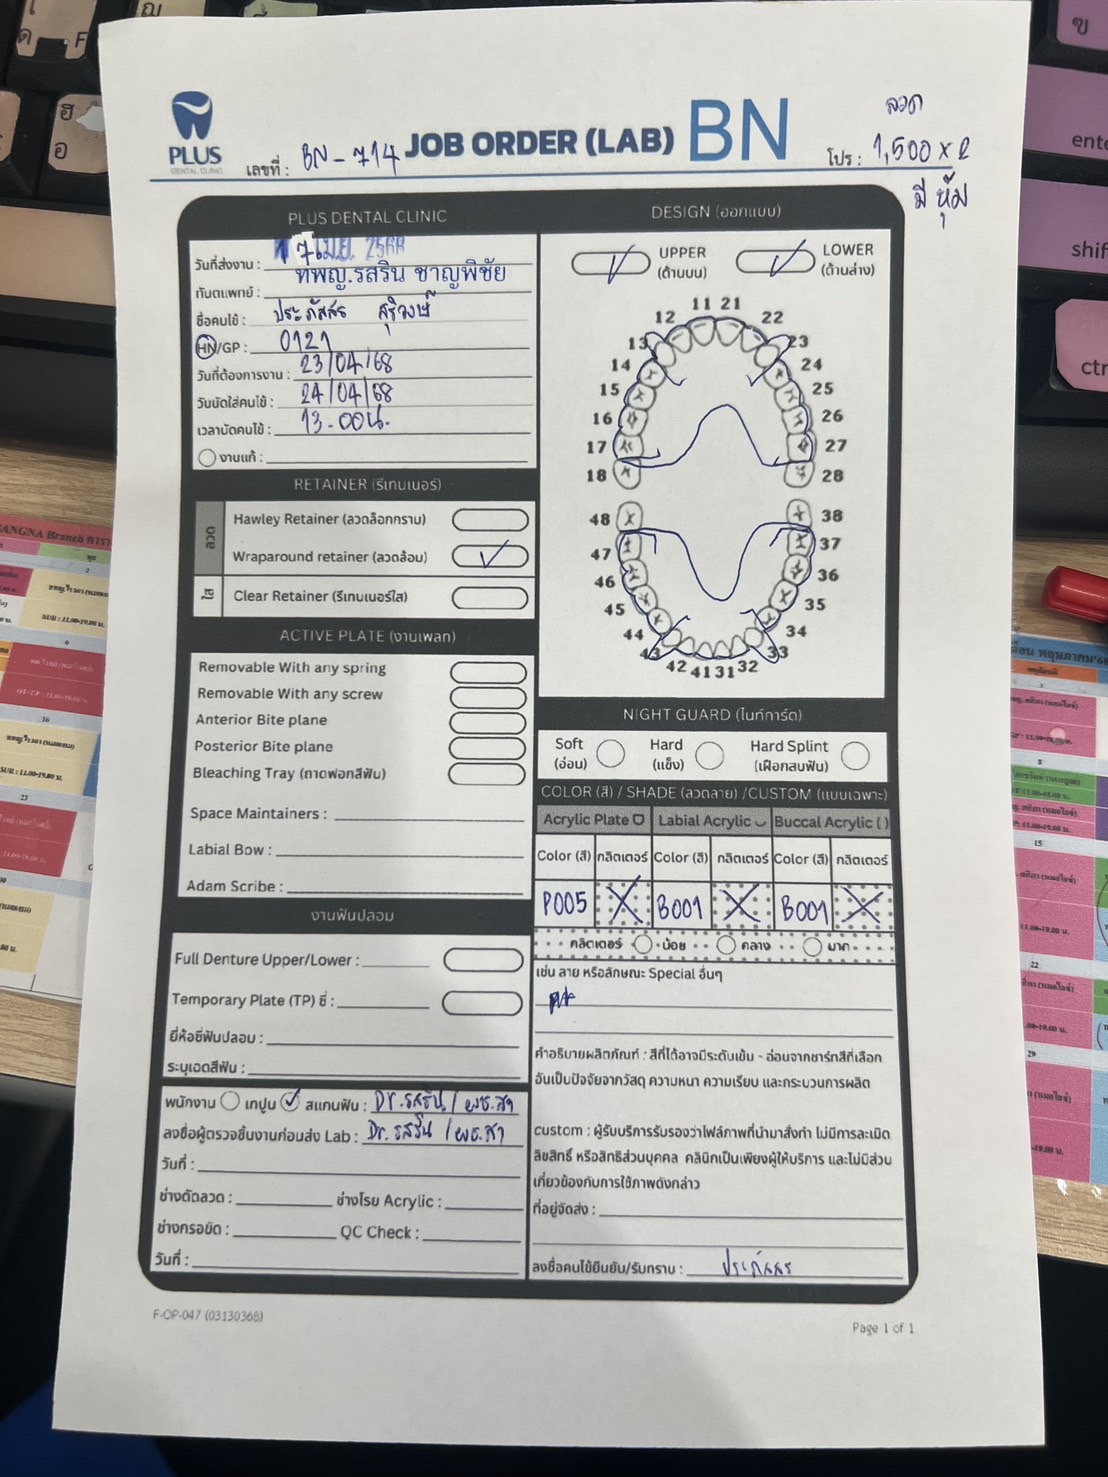 PLUS
DENTAL CLINIC
เลขที่ : BN-714
JOB ORDER (LAB) BN
ลวด
โปร : 1,500 x 2
มี หุ้ม
PLUS DENTAL CLINIC
วันที่ส่งงาน : 17 เม.ย. 2568
ทันตแพทย์ : ทพญ.รสริน ชาญพิชัย
ชื่อคนไข้ : ประภัสสร สุริวงษ์
HN/GP : 0121
วันที่ต้องการงาน : 23/04/68
วันนัดใส่คนไข้ : 24/04/68
เวลานัดคนไข้ : 13.00น.
งานแก้ :
RETAINER (รีเทนเนอร์)
ลวด
Hawley Retainer (ลวดล็อกกราม)
Wraparound retainer (ลวดล้อม)
ใส
Clear Retainer (รีเทนเนอร์ใส)
ACTIVE PLATE (งานเพลท)
Removable With any spring
Removable With any screw
Anterior Bite plane
Posterior Bite plane
Bleaching Tray (ถาดฟอกสีฟัน)
Space Maintainers :
Labial Bow :
Adam Scribe :
งานฟันปลอม
Full Denture Upper/Lower :
Temporary Plate (TP) ซี่ :
ยี่ห้อซี่ฟันปลอม :
ระบุเฉดสีฟัน :
พนักงาน เทปูน สแกนฟัน : Dr.รสริน / ผช.สา
ลงชื่อผู้ตรวจชิ้นงานก่อนส่ง Lab : Dr.รสริน / ผช.สา
วันที่ :
ช่างดัดลวด : ช่างโรย Acrylic :
ช่างกรอขัด : QC Check :
วันที่ :
DESIGN (ออกแบบ)
UPPER
(ด้านบน)
LOWER
(ด้านล่าง)
11 21
12 22
13 23
14 24
15 25
16 26
17 27
18 28
48 38
47 37
46 36
45 35
44 34
43 33
42 41 31 32
NIGHT GUARD (ไนท์การ์ด)
Soft
(อ่อน)
Hard
(แข็ง)
Hard Splint
(เฝือกสบฟัน)
COLOR (สี) / SHADE (ลวดลาย) /CUSTOM (แบบเฉพาะ)
Acrylic Plate Labial Acrylic Buccal Acrylic ( )
Color (สี) กลิตเตอร์ Color (สี) กลิตเตอร์ Color (สี) กลิตเตอร์
P005 B001 B001
กลิตเตอร์ น้อย กลาง มาก
เช่น ลาย หรือลักษณะ Special อื่นๆ
คำอธิบายผลิตภัณฑ์ : สีที่ได้อาจมีระดับเข้ม - อ่อนจากชาร์ทสีที่เลือก
อันเป็นปัจจัยจากวัสดุ ความหนา ความเรียบ และกระบวนการผลิต
custom : ผู้รับบริการรับรองว่าไฟล์ภาพที่นำมาสั่งทำ ไม่มีการละเมิด
ลิขสิทธิ์ หรือสิทธิส่วนบุคคล คลินิกเป็นเพียงผู้ให้บริการ และไม่มีส่วน
เกี่ยวข้องกับการใช้ภาพดังกล่าว
ที่อยู่จัดส่ง :
ลงชื่อคนไข้ยืนยัน/รับทราบ : ประภัสสร
F-OP-047 (03130368)
Page 1 of 1